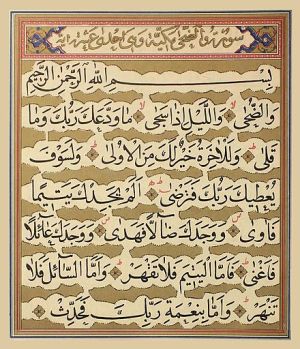 سورة والضحى مكية وهي احدى عشرة اية
بِسْمِ اللّٰهِ الرَّحْمٰنِ الرَّحِيمِ
وَالضُّحٰى وَالَّيْلِ اِذَا سَجٰى مَا وَدَّعَكَ رَبُّكَ وَمَا
قَلٰى وَلَلْاٰخِرَةُ خَيْرٌ لَكَ مِنَ الْاُولٰى وَلَسَوْفَ
يُعْطِيكَ رَبُّكَ فَتَرْضٰى اَلَمْ يَجِدْكَ يَتِيمًا
فَاٰوٰى وَوَجَدَكَ ضَالًّا فَهَدٰى وَوَجَدَكَ عَائِلًا
فَاَغْنٰى فَاَمَّا الْيَتِيمَ فَلَا تَقْهَرْ وَاَمَّا السَّائِلَ فَلَا
تَنْهَرْ وَاَمَّا بِنِعْمَةِ رَبِّكَ فَحَدِّثْ